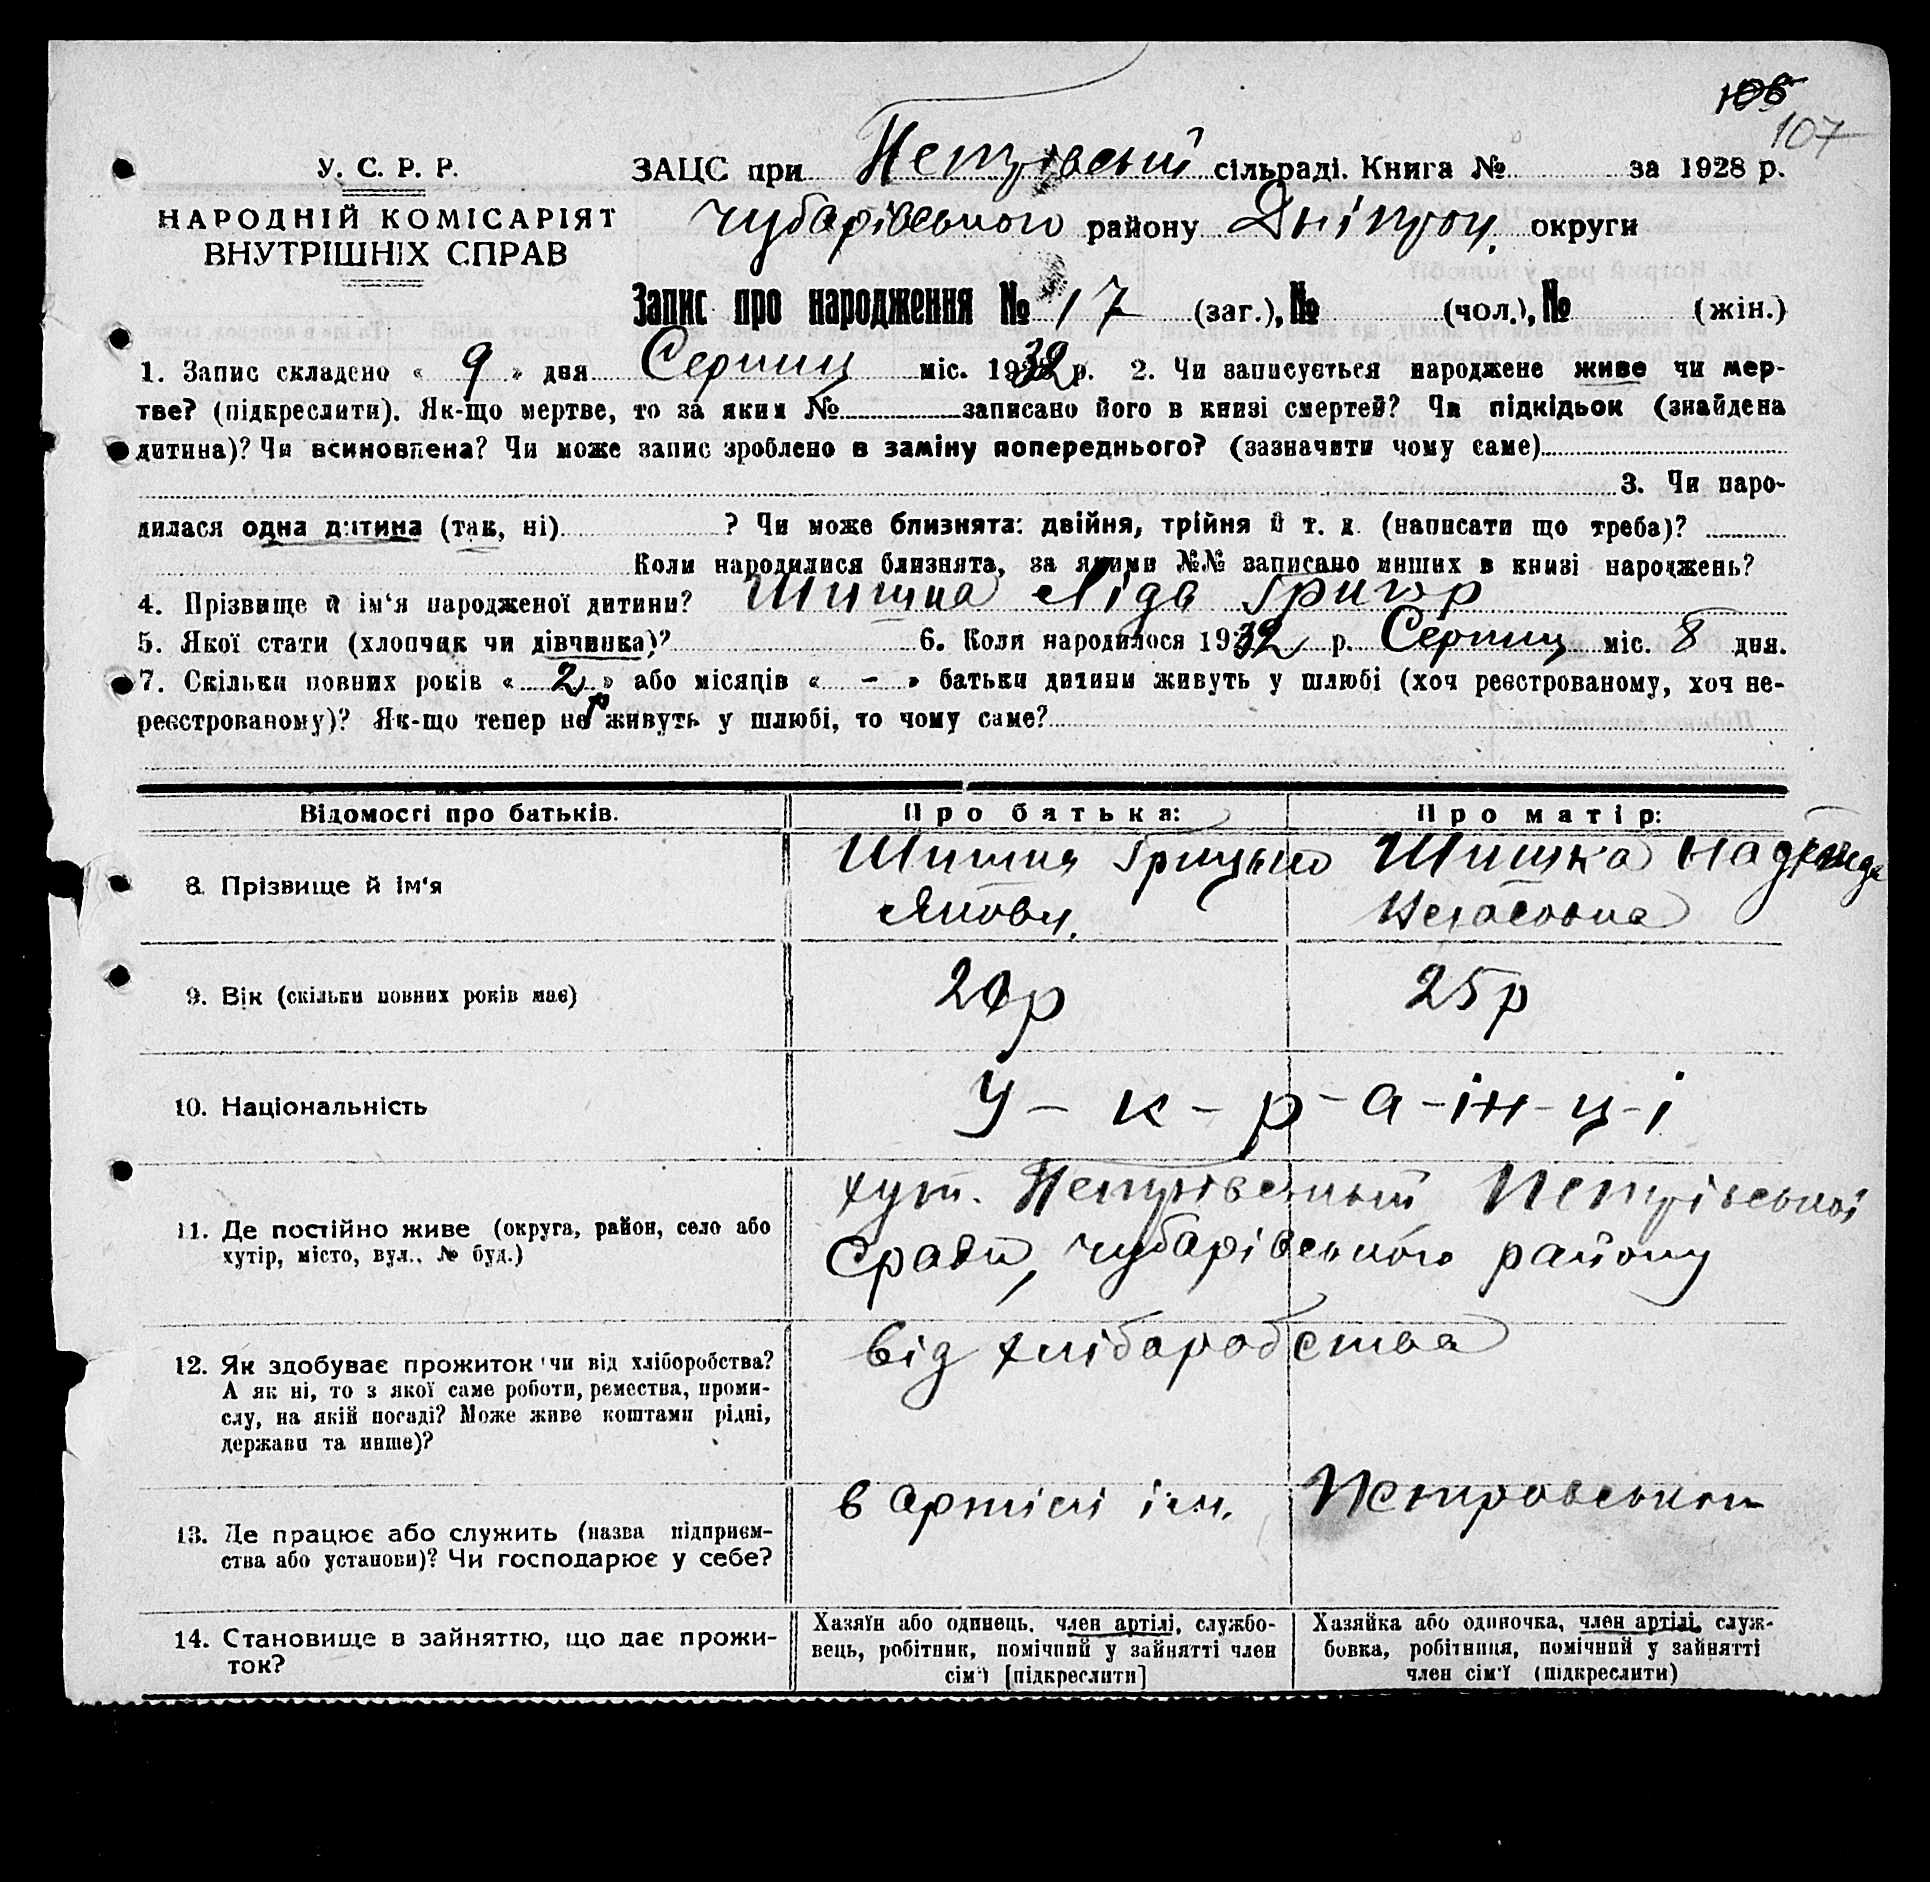 105
107
У. С. Р. Р.
НАРОДНІЙ КОМІСАРІЯТ
ВНУТРІШНІХ СПРАВ
ЗАЦС при Петрівській сільраді. Книга № за 1928 р.
Чубарівського району Дніпроп. округи
Запис про народження № 17 (заг.), № (чол.), № (жін.)
1. Запис складено « 9 » дня Серпня міс. 1932 р. 2. Чи записується народжене живе чи мер-
тве? (підкреслити). Як-що мертве, то за яким № записано його в книзі смертей? Чи підкідьок (знайдена
дитина)? Чи всиновлена? Чи може запис зроблено в заміну попереднього? (зазначити чому саме)
3. Чи наро-
дилася одна дитина (так, ні) ? Чи може близнята: двійня, трійня й т. д. (написати що треба)?
Коли народилися близнята, за якими №№ записано инших в книзі народжень?
4. Прізвище й ім‘я народженої дитини? Шишка Ліда Григор
5. Якої стати (хлопчик чи дівчинка)? 6. Коли народилося 1932 р. Серпня міс. 8 дня.
7. Скільки повних років « 2 р » або місяців « - » батьки дитини живуть у шлюбі (хоч реєстрованому, хоч не-
реєстрованому)? Як-що тепер не живуть у шлюбі, то чому саме?
Відомості про батьків. Про батька: Про матір:
8. Прізвище й ім‘я Шишка Грицько Шишка Надежда
Яковл.
9. Вік (скільки повних років має) 25р
10. Національність У - к - р - а - ін - ц - і
хут. Петрівський Петрівської
11. Де постійно живе (округа, район, село або
хутір, місто, вул., № буд.)
Сради, Чубарівського району
від хлібаробства
12. Як здобуває прожиток чи від хліборобства?
А як ні, то з якої саме роботи, ремества, проми-
слу, на якій посаді? Може живе коштами рідні,
держави та инше)?
в артілі ім. Петровського
13. Де працює або служить (назва підприєм-
ства або установи)? Чи господарює у себе?
14. Становище в зайняттю, що дає прожи-
ток?
Хазяїн або одинець, член артілі, службо-
вець, робітник, помічний у зайнятті член
сім‘ї [підкреслити]
Хазяйка або одиночка, член артілі, служ-
бовка, робітниця, помічний у зайнятті
член сім‘ї (підкреслити)